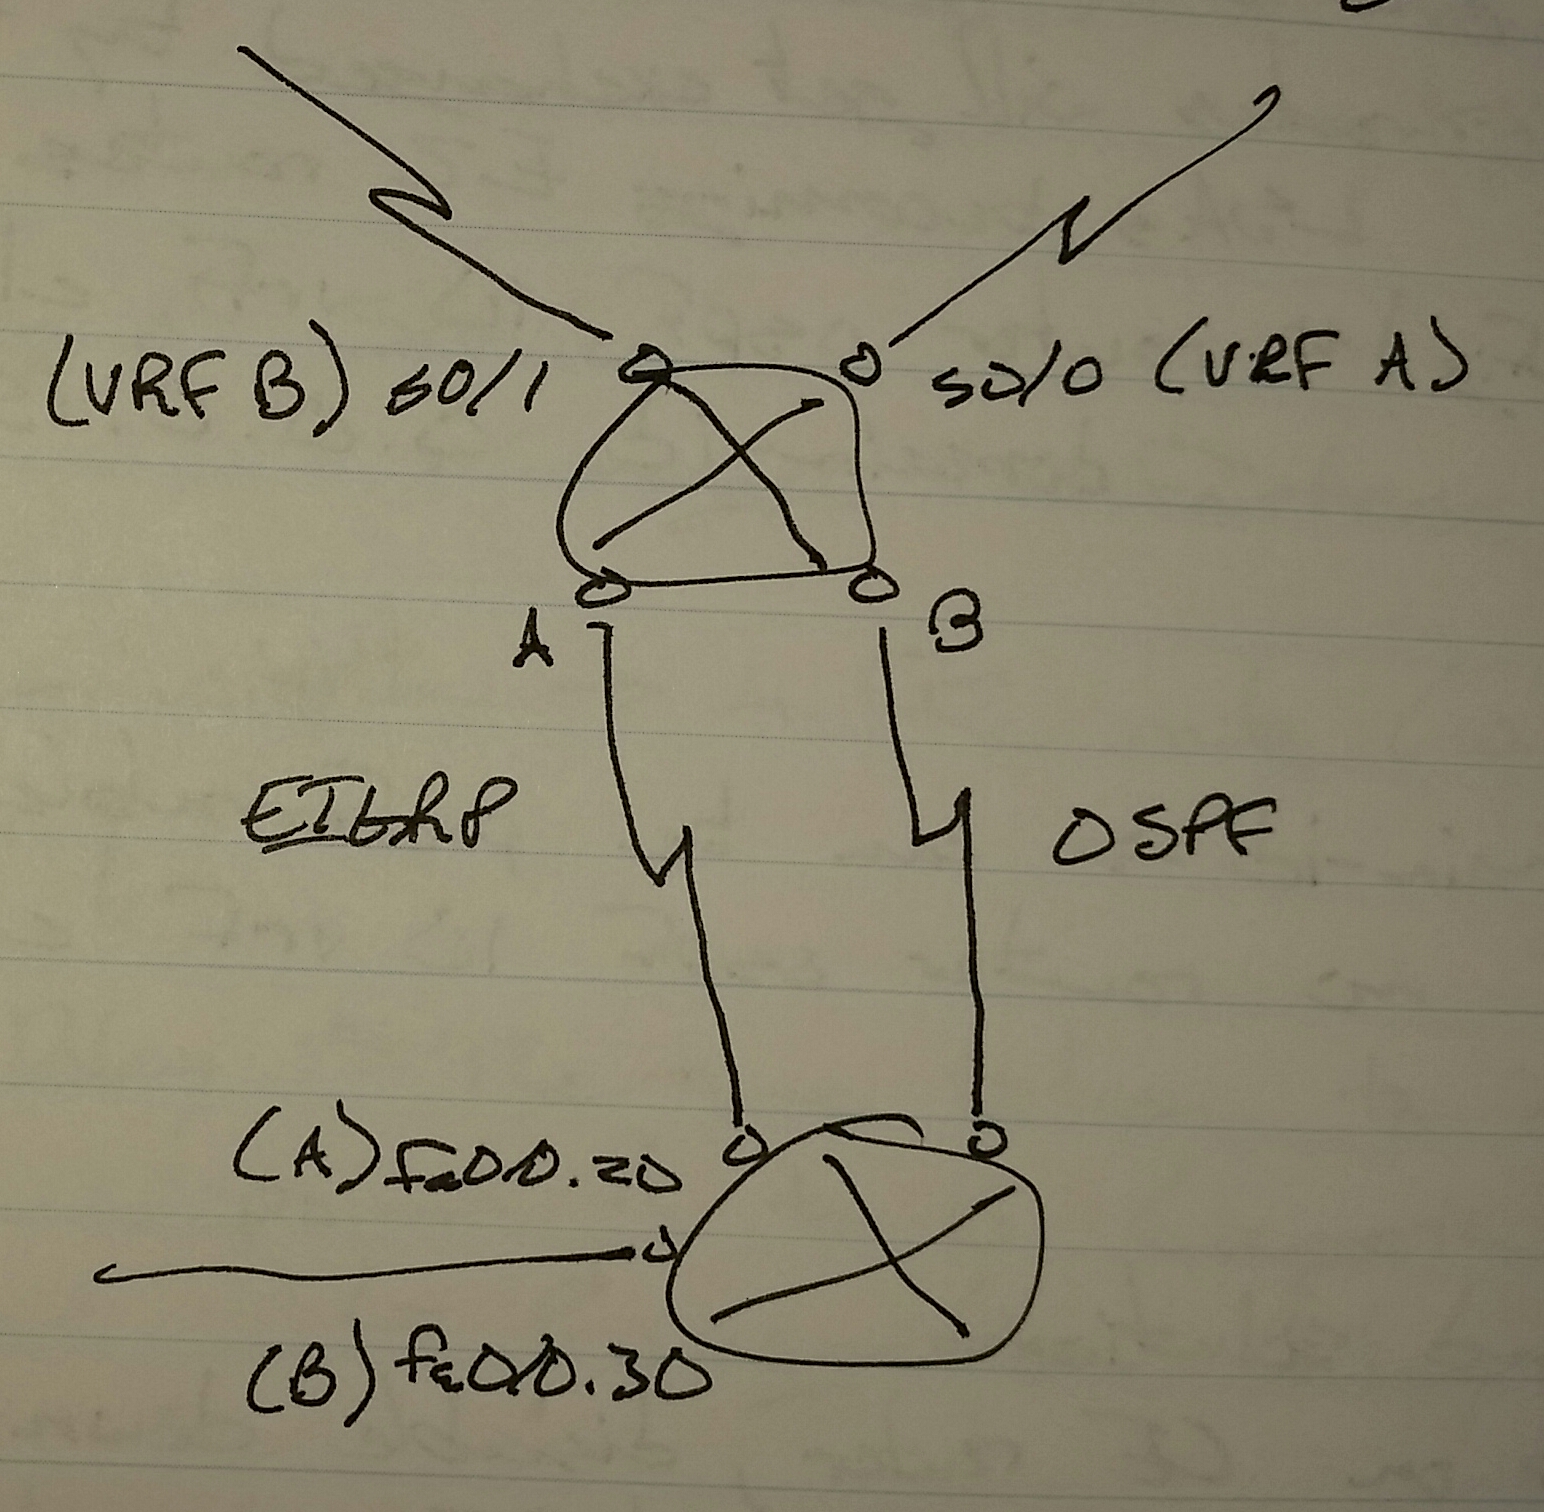 (VRF B) s0/1
s0/0 (VRF A)
A
B
EIGRP
OSPF
(A) fa0/0.20
(B) fa0/0.30